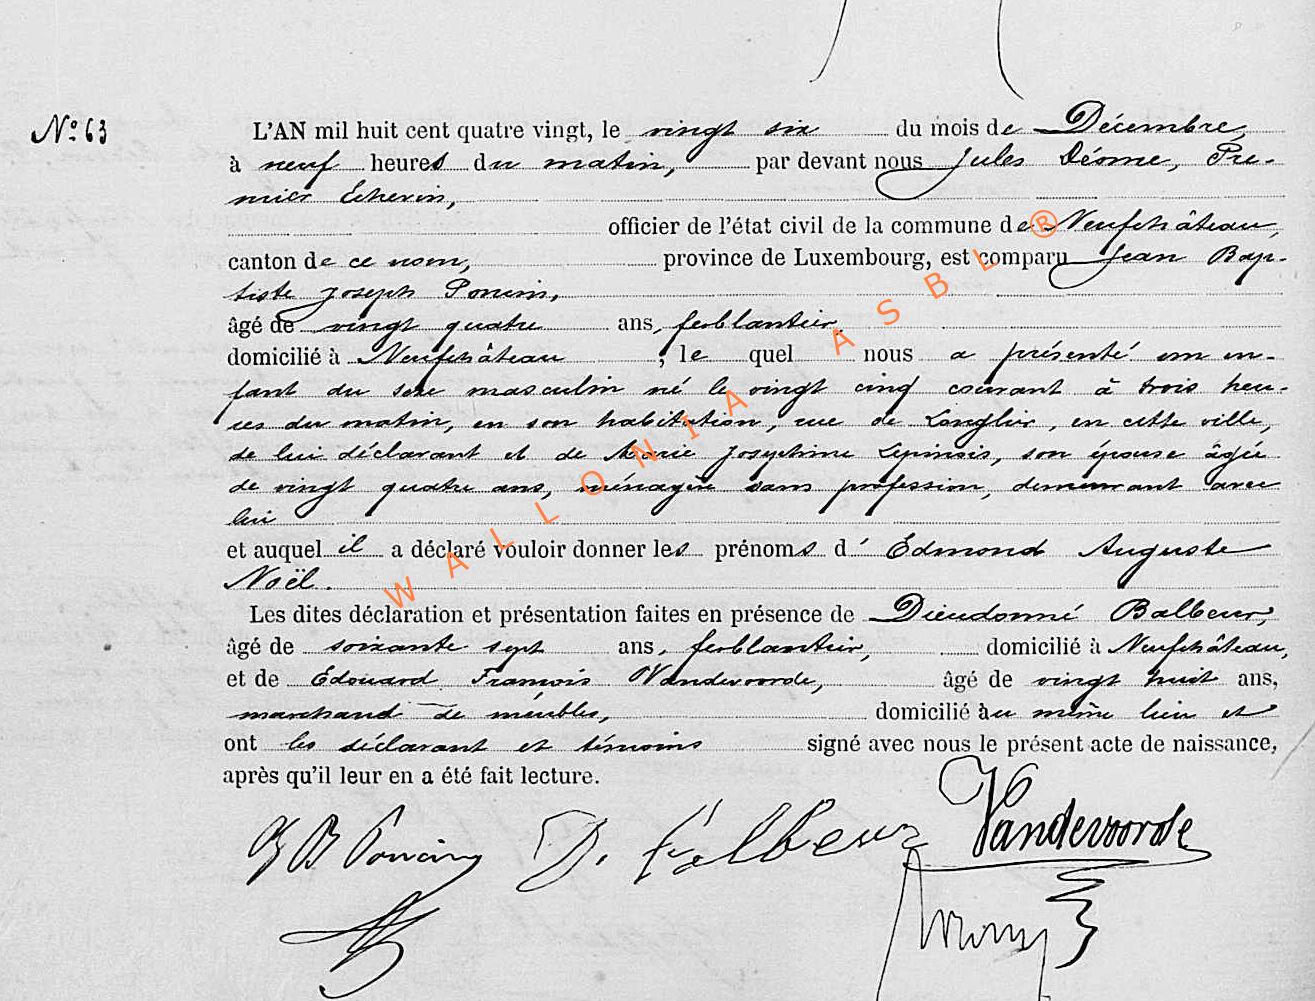 N° 63
L'AN mil huit cent quatre vingt, le vingt six du mois de Décembre,
à neuf heures du matin, par devant nous Jules Déome, Pre-
mier Echevin,
officier de l'état civil de la commune de Neufchâteau,
canton de ce nom, province de Luxembourg, est comparu Jean Bap-
tiste Joseph Poncin,
âgé de vingt quatre ans, ferblantier,
domicilié à Neufchâteau, le quel nous a présenté un en-
fant du sexe masculin né le vingt cinq courant à trois heu-
res du matin, en son habitation, rue de Longlier, en cette ville,
de lui déclarant et de Marie Josephine Lepinois, son épouse âgée
de vingt quatre ans, ménagère sans profession, demeurant avec
lui
et auquel il a déclaré vouloir donner les prénoms d' Edmond Auguste
Noël.
Les dites déclaration et présentation faites en présence de Dieudonné Balbeur,
âgé de soixante sept ans, ferblantier, domicilié à Neufchâteau,
et de Edouard François Vandevoorde, âgé de vingt huit ans,
marchand de meubles, domicilié au même lieu et
ont les déclarant et témoins signé avec nous le présent acte de naissance,
après qu'il leur en a été fait lecture.
J B Poncin D. Balbeur Vandevoorde
WALLONIA ASBL ®